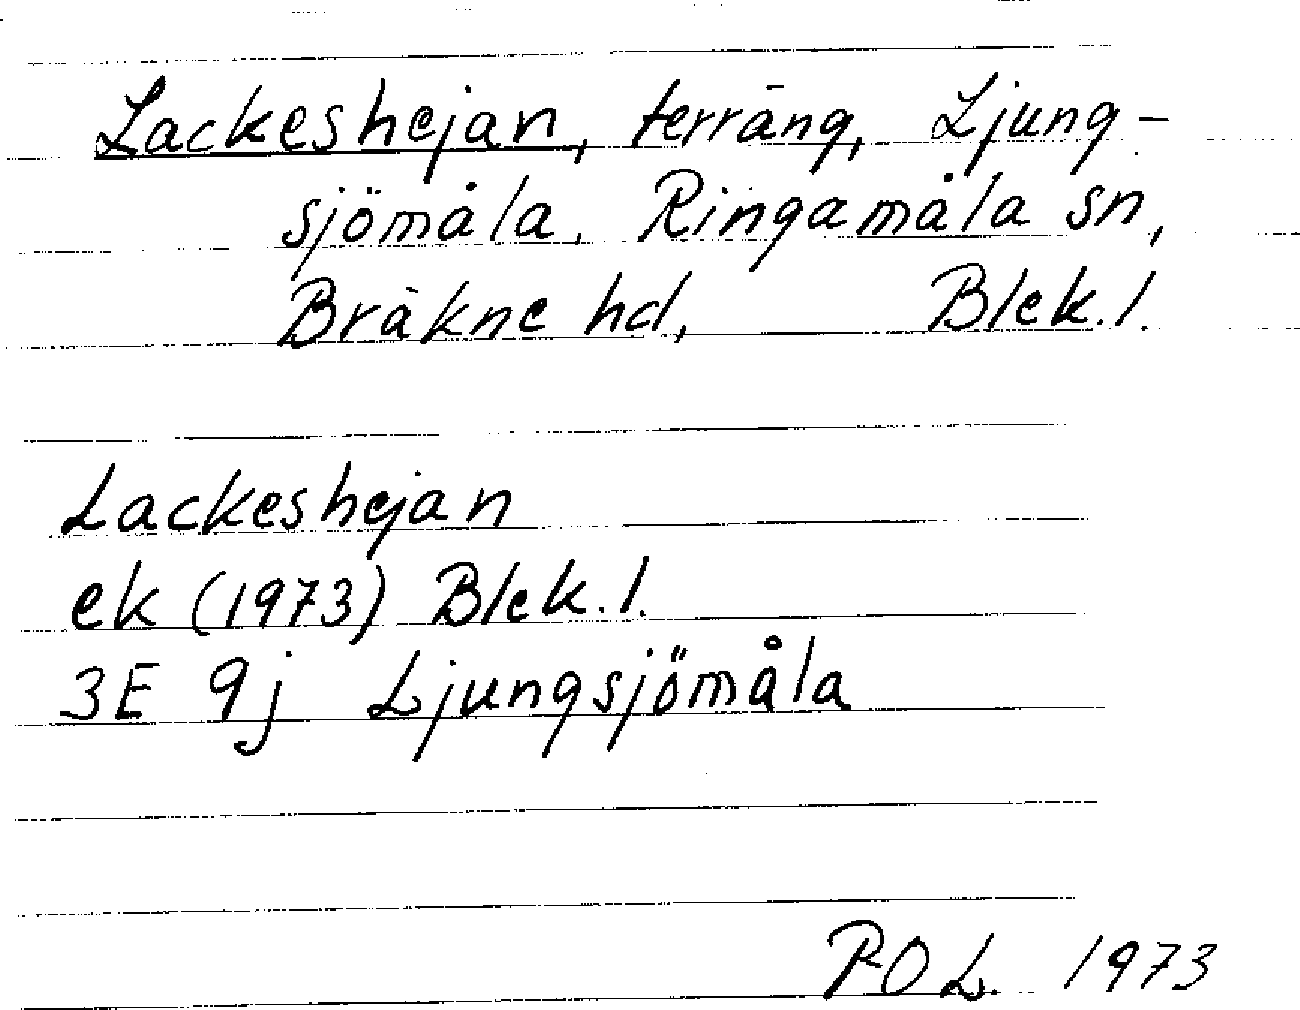 Lackeshejan, terräng, Ljung-
sjömåla, Ringamåla sn,
Bräkne hd, Blek. l.
Lackeshejan
ek (1973) Blek. l.
3E 9j Ljungsjömåla
P.O L. 1973